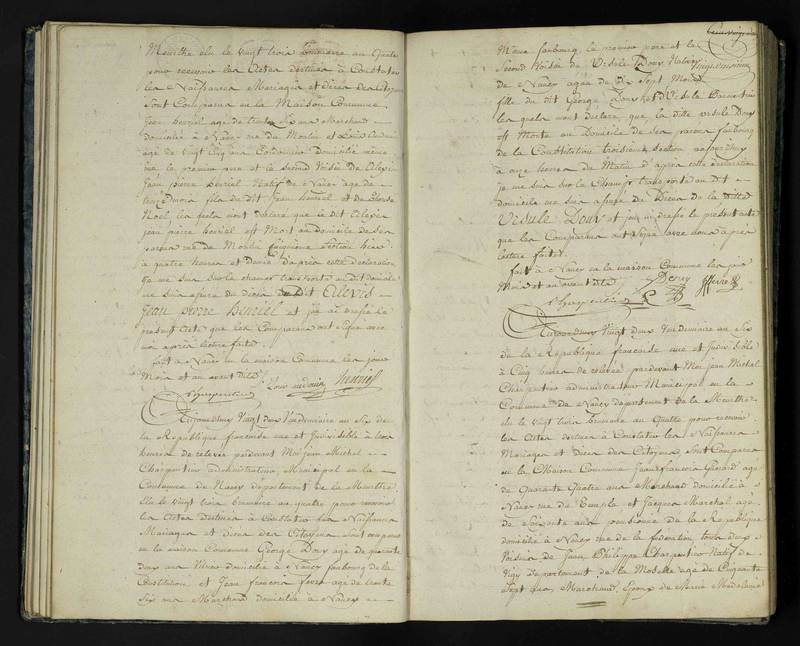 Meurthe élu le vingt trois brumaire an Quatre
pour recevoir les Actes destinés à Constater
les Naissances Mariages et Décès des Citoyens
sont Comparus en la Maison Commune
Jean henriel agé de trente Six ans Marchand
domicilié à Nancy rue du Moulin et Louis audouin
agé de vingt Cinq ans Cordonnier Domicilié même
rue le premier père et le second Voisin de Alexis
Jean pierre henriel Natif de Nancy agé de
mois fils du dit Jean henriel et de
Noel, les quels nont déclaré que le dit Alexis
jean pierre henriel est Mort au domicile de ses
parens rue du Moulin Section hier
à quatre heures et Demie D'après cette déclaration
je me suis sur le champ transporté au dit domicile
me suis assuré du décès du Dit Alexis
Jean pierre Henriel et j'ai dressé le
présent acte que les Comparans ont signé avec
moi après lecture faite.
fait à Nancy en la maison Commune les jour
Mois et an avant dits
Louis audouin henriel
Charpentier
Aujourdhuy Vingt deux Vendemiaire an Six de
la République française une et Indivisible à
heures de relevée pardevant Moi jean Michel
Charpentier administrateur Municipal en la
Commune de Nancy département de la Meurthe
élu le vingt trois brumaire an quatre pour recevoir
les Actes Destinés à Constater les Naissances
Mariages et Décès des Citoyens sont comparus
en la maison Commune George Douy agé de quarante
deux ans domicilié à Nancy faubourg de la
Constitution et Jean françois ferré agé de trente
Six ans Marchand domicilié à Nancy
Même faubourg, le premier père et le
Second Voisin de Ursule Douy Native
de Nancy agée de dix Sept Mois
fille du dit George Douy et d'Ursule
les quels nont déclaré que la ditte Ursule Douy
est Morte au Domicile de ses parens faubourg
de la Constitution troisième section aujourdhuy
à onze heures du Matin d'après cette déclaration
je me suis sur le Champ transporté au dit
domicile me suis assuré du Décès de la ditte
Ursule Douy et j'ai dressé le présent acte
que les Comparans ont Signé avec moi après
lecture faite.
fait à Nancy en la maison Commune les jour
Mois et an avant dits
Charpentier
Aujourdhuy Vingt deux Vendemiaire an Six
de la République française une et Indivisible
à Cinq heures de relevée pardevant Moi jean Michel
Charpentier administrateur Municipal en la
Commune de Nancy département de la Meurthe
élu le vingt trois brumaire an Quatre pour recevoir
les Actes destinés à Constater les Naissances
Mariages et Décès des Citoyens, sont Comparus
en la Maison Commune Jean françois Gérard agé
de Quarante Quatre ans Marchand domicilié à
Nancy rue du Temple et Jacques Marchal agé
de soixante ans pensionné de la République
domicilié à Nancy rue de la fédération, tous deux
Voisins de Jean Philippe Charpentier Natif de
Vigy Département de la Moselle agé de Cinquante
sept ans, Marchand, Epoux de Marie Madelaine